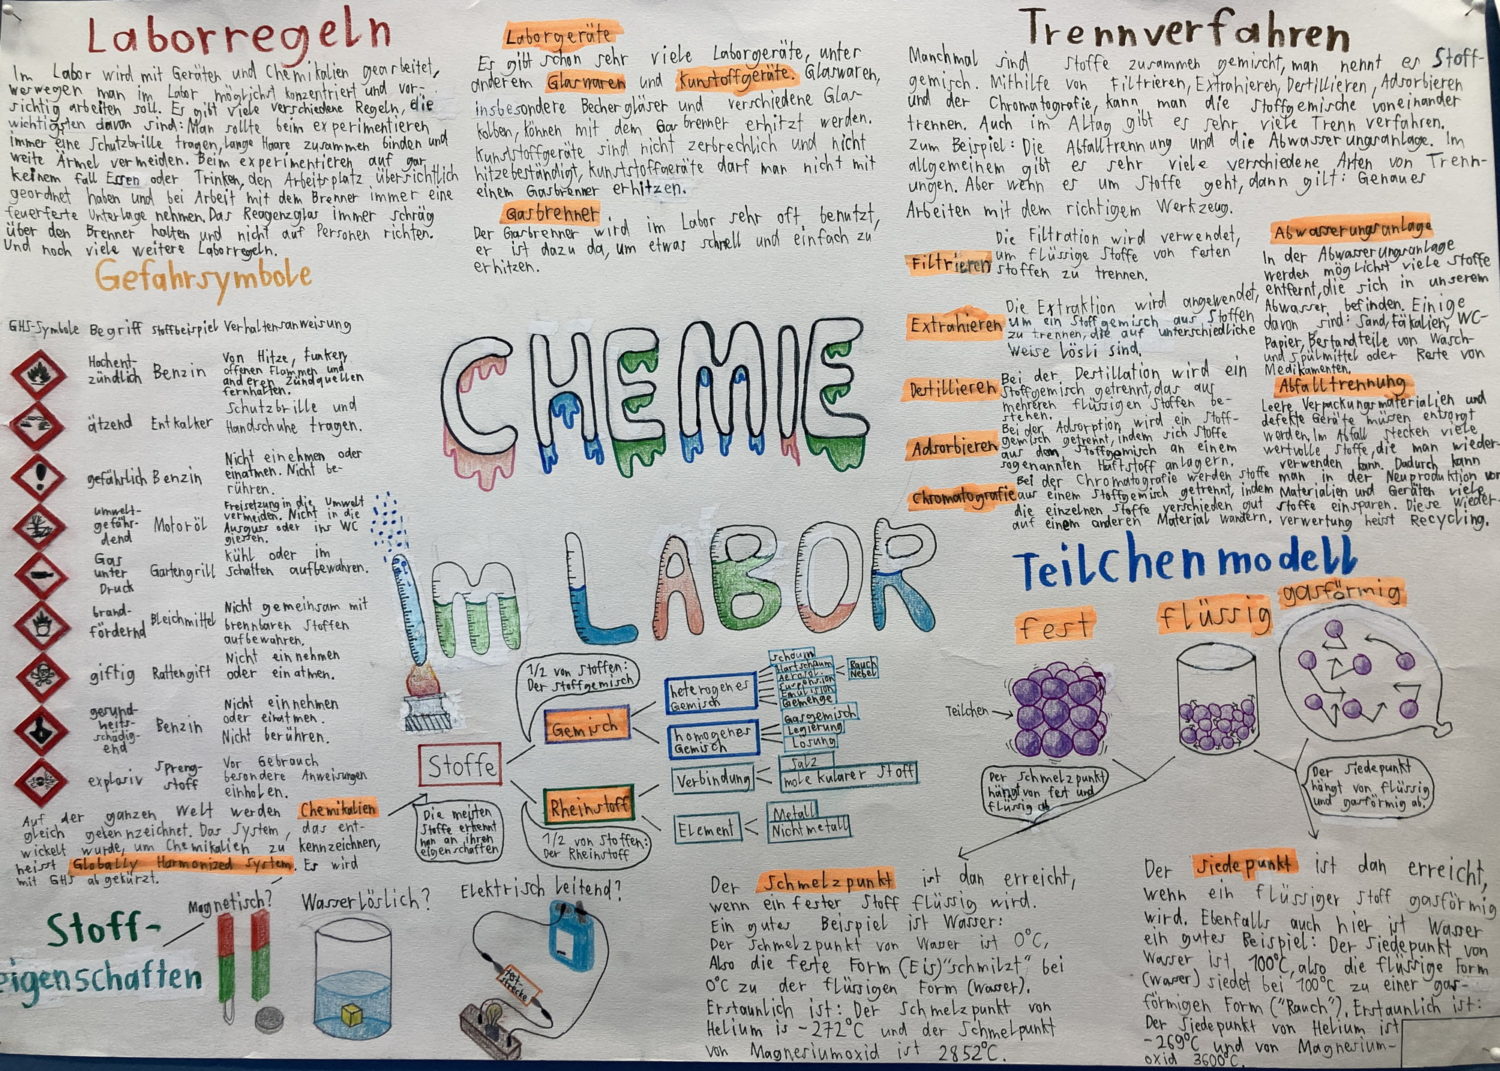 Laborregeln
Im Labor wird mit Geräten und Chemikalien gearbeitet,
weswegen man im Labor möglichst konzentriert und vor-
sichtig arbeiten soll. Es gibt viele verschiedene Regeln, die
wichtigsten davon sind: Man sollte beim experimentieren
immer eine Schutzbrille tragen, lange Haare zusammen binden und
weite Ärmel vermeiden. Beim experimentieren auf gar
keinem fall Essen oder Trinken, den Arbeitsplatz übersichtlich
geordnet haben und bei Arbeit mit dem Brenner immer eine
feuerfeste Unterlage nehmen. Das Reagenzglas immer schräg
über den Brenner halten und nicht auf Personen richten.
Und noch viele weitere Laborregeln.
Gefahrsymbole
GHS-Symbole Begriff stoffbeispiel Verhaltensanweisung
Hochent-
zündlich
Benzin
Von Hitze, funken,
offenen flammen und
anderen Zündquellen
fernhalten.
ätzend
Entkalker
Schutzbrille und
Handschuhe tragen.
gefährlich
Benzin
Nicht einehmen oder
einatmen. Nicht be-
rühren.
umwelt-
gefähr-
dend
Motoröl
Freisetzung in die Umwelt
vermeiden. Nicht in die
Ausguss oder ins WC
giessen.
Gas
unter
Druck
Gartengrill
Kühl oder im
schatten aufbewahren.
brand-
fördernd
Bleichmittel
Nicht gemeinsam mit
brennbaren Stoffen
aufbewahren.
giftig
Rattengift
Nicht einnehmen
oder einatmen.
gesund-
heits-
schädig-
end
Benzin
Nicht einnehmen
oder einatmen.
Nicht berühren.
explosiv
Spreng-
stoff
Vor Gebrauch
besondere Anweisungen
einholen.
Auf der ganzen Welt werden Chemikalien
gleich gekennzeichnet. Das System, das ent-
wickelt wurde, um Chemikalien zu kennzeichnen,
heisst Globally Harmonized System. Es wird
mit GHS abgekürzt.
Laborgeräte
Es gibt schon sehr viele Laborgeräte, unter
anderem Glaswaren und Kunstoffgeräte. Glaswaren,
insbesondere Bechergläser und verschiedene Glas-
kolben, können mit dem Gasbrenner erhitzt werden.
Kunststoffgeräte sind nicht zerbrechlich und nicht
hitzebeständigt, Kunststoffgeräte darf man nicht mit
einem Gasbrenner erhitzen.
Gasbrenner
Der Gasbrenner wird im Labor sehr oft benutzt,
er ist dazu da, um etwas schnell und einfach zu
erhitzen.
CHEMIE
Im LABOR
Trennverfahren
Manchmal sind Stoffe zusammen gemischt, man nennt es Stoff-
gemisch. Mithilfe von Filtrieren, Extrahieren, Destillieren, Adsorbieren
und der Chromatografie, kann man die Stoffgemische voneinander
trennen. Auch im Altag gibt es sehr viele Trennverfahren.
Zum Beispiel: Die Abfalltrennung und die Abwasserungsanlage. Im
allgemeinem gibt es sehr viele verschiedene Arten von Trenn-
ungen. Aber wenn es um Stoffe geht, dann gilt: Genaues
Arbeiten mit dem richtigem Werkzeug.
Filtrieren
Die Filtration wird verwendet,
um flüssige Stoffe von festen
stoffen zu trennen.
Extrahieren
Die Extraktion wird angewendet,
um ein Stoffgemisch aus Stoffen
zu trennen, die auf unterschiedliche
Weise lösli sind.
Destillieren
Bei der Destillation wird ein
Stoffgemisch getrennt, das aus
mehreren flüssigen Stoffen be-
stehen.
Adsorbieren
Bei der Adsorption wird ein Stoff-
gemisch getrennt, indem sich Stoffe
aus dem Stoffgemisch an einem
sogenannten Haftstoff anlagern.
Chromatografie
Bei der Chromatografie werden Stoffe
aus einem Stoffgemisch getrennt, indem
die einzelnen Stoffe verschieden gut
auf einem anderen Material wandern.
Abwasserungsanlage
In der Abwasserungsanlage
werden möglichst viele Stoffe
entfernt, die sich in unserem
Abwasser befinden. Einige
davon sind: Sand, fäkalien, WC-
Papier, Bestandteile von Wasch-
und Spülmittel oder Reste von
Medikamenten.
Abfalltrennung
Leere Verpackungsmaterialien und
defekte Geräte müssen entsorgt
werden. Im Abfall stecken viele
wertvolle Stoffe, die man wieder-
verwenden kann. Dadurch kann
man in der Neuproduktion von
Materialien und Geräten viele
stoffe einsparen. Diese Wieder-
verwertung heisst Recycling.
Teilchenmodell
fest
flüssig
gasförmig
Teilchen
Der Schmelzpunkt
hängt von fest und
flüssig ab.
Der Siedepunkt
hängt von flüssig
und gasförmig ab.
Der Schmelzpunkt ist dan erreicht,
wenn ein fester Stoff flüssig wird.
Ein gutes Beispiel ist Wasser:
Der Schmelzpunkt von Wasser ist 0°C,
Also die feste Form (Eis) "schmilzt" bei
0°C zu der flüssigen Form (Wasser).
Erstaunlich ist: Der Schmelzpunkt von
Helium is -272°C und der Schmelpunkt
von Magnesiumoxid ist 2852°C.
Der Siedepunkt ist dan erreicht,
wenn ein flüssiger Stoff gasförmig
wird. Ebenfalls auch hier ist Wasser
ein gutes Beispiel: Der Siedepunkt von
Wasser ist 100°C, also die flüssige Form
(Wasser) siedet bei 100°C zu einer gas-
förmigen Form ("Rauch"). Erstaunlich ist:
Der Siedepunkt von Helium ist
-269°C und von Magnesium-
oxid 3600°C.
Stoffe
Die meisten
Stoffe erkennt
man an ihren
eigenschaften
1/2 von Stoffen:
Der Stoffgemisch
Gemisch
heterogenes
Gemisch
Schaum
Hartschaum
Aerosol
Suspension
Emulsion
Gemenge
Rauch
Nebel
homogenes
Gemisch
Gasgemisch
Legierung
Lösung
Rheinstoff
1/2 von Stoffen:
Der Rheinstoff
Verbindung
Salz
molekularer Stoff
Element
Metall
Nichtmetall
Stoff-
eigenschaften
Magnetisch?
Wasserlöslich?
Elektrisch leitend?
Test-
strecke